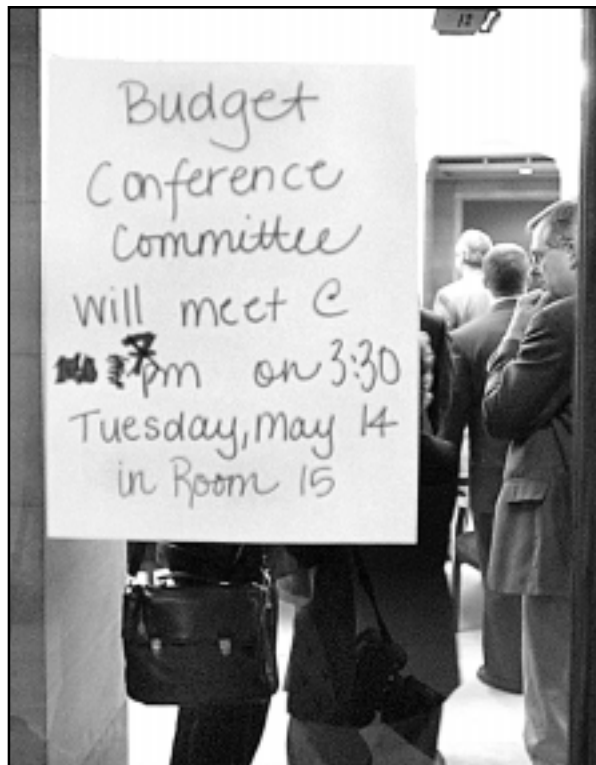 12
Budget
Conference
Committee
will meet @
pm on 3:30
Tuesday, May 14
in Room 15